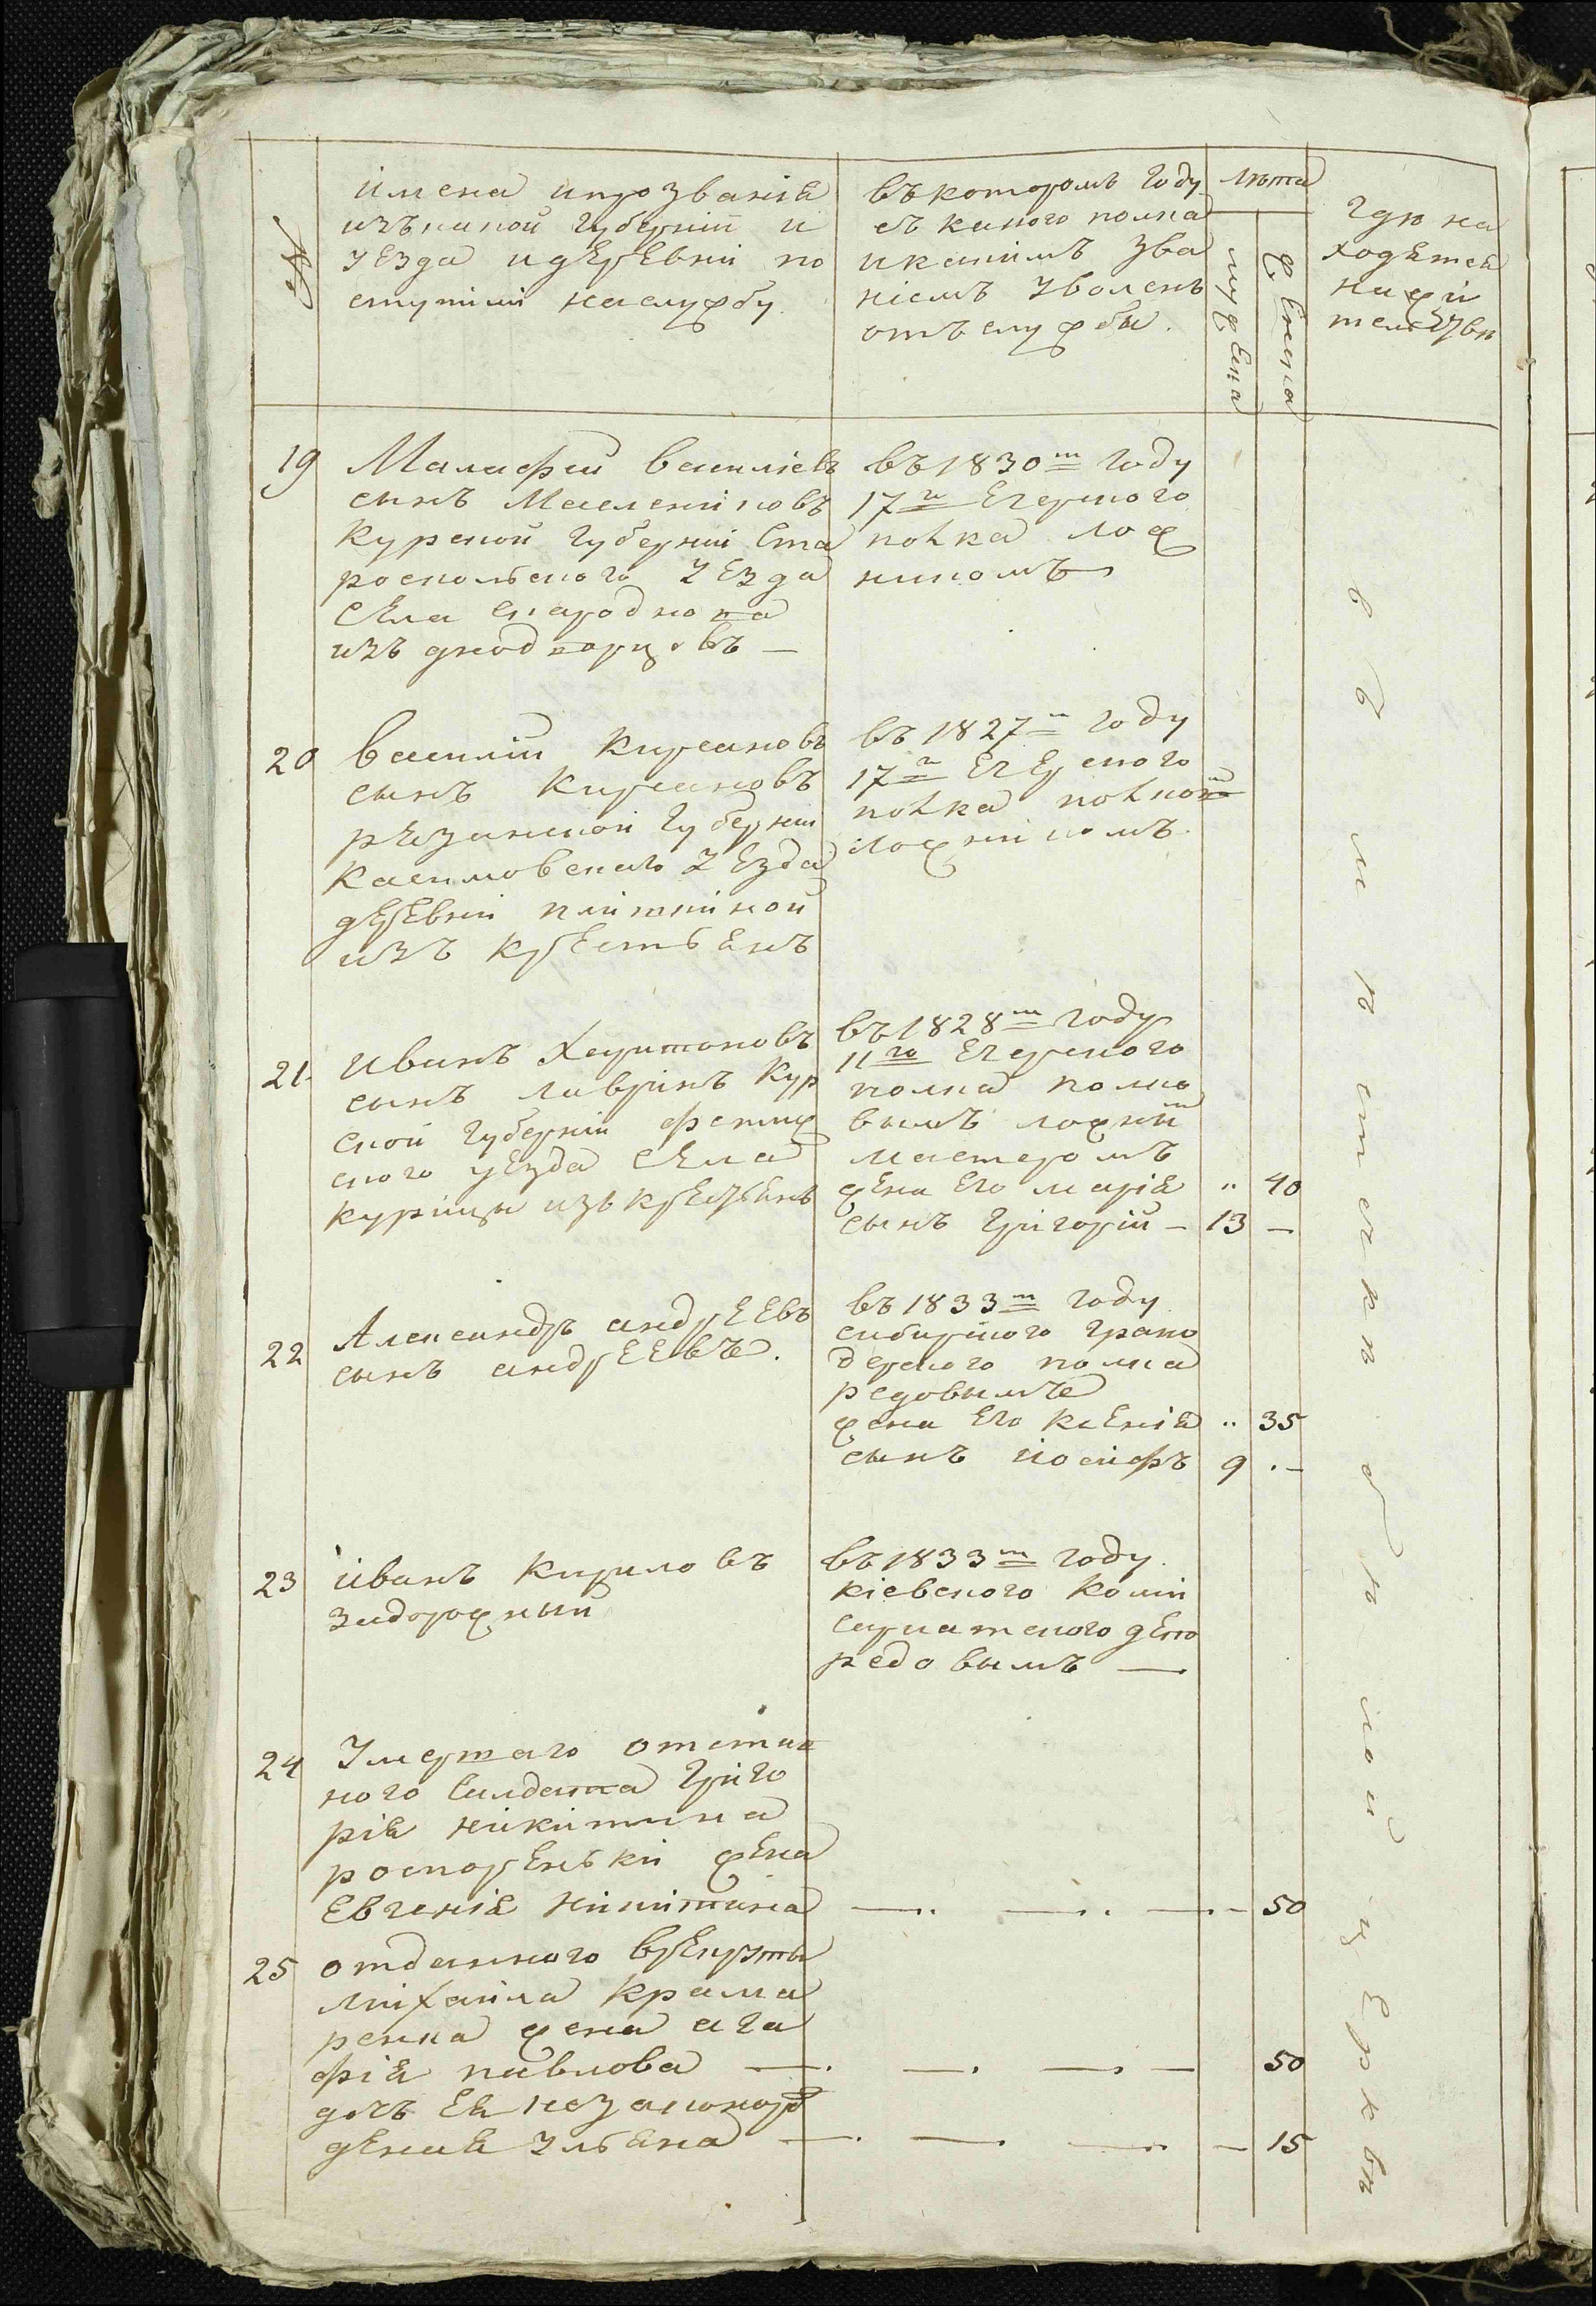 №
имена ипрозванія
изъкакой губерніи и
уезда идеревни по
ступили наслужбу
въкоторомъ году
съ какого полка
икакимъ зва
ніемъ уволенъ
отъслужбы.
лѣта
мужеска
женска
гдѣ на
ходятся
нажи
тельствѣ
19
Малафей василіевъ
сынъ Маслениковъ
Курской губерніи Ста
роскольского уезда
села
изъ дноdворцовъ —
въ 1830 м году
17 го Егерского
полка лож
никомъ
20
василій Кирсановъ
сынъ Кирсановъ
резанской губерніи
Касимовскаго уезда
деревни плитиной
изъ крестьянъ
въ 1827 м году
17 го Егерского
полка
ложникомъ.
21
иванъ Харитоновъ
сынъ лавринъ Кур
ской губерніи фатиж
ского уезда села
курицы изъ крестьянъ
въ 1828 м году
11 го Егерского
полка полко
вымъ ложнымъ
мастеромъ
жена Его марія „ 40
сынъ григорій — 13 —
22
Александръ андреевъ
сынъ андреевъ.
въ 1833 м году
сибирского грано
дерского полка
редовымъ
жена Его ксенія „ 35
сынъ іосифъ 9 . —
23
иванъ Кириловъ
задорожный
въ 1833 м году.
кіевского коми
сариатского депо
редовымъ —
24
Умершаго отстав
ного Салдата Григо
рія никитина
роспоренъки жена
Евгенія никитина — 50
25
отданного врекруты
михайла Крама
ренка жена ага
фія павлова — 50
дочь Ея незаконорож
деная Ульяна — 15
въ мѣстечкѣ
церквѣ